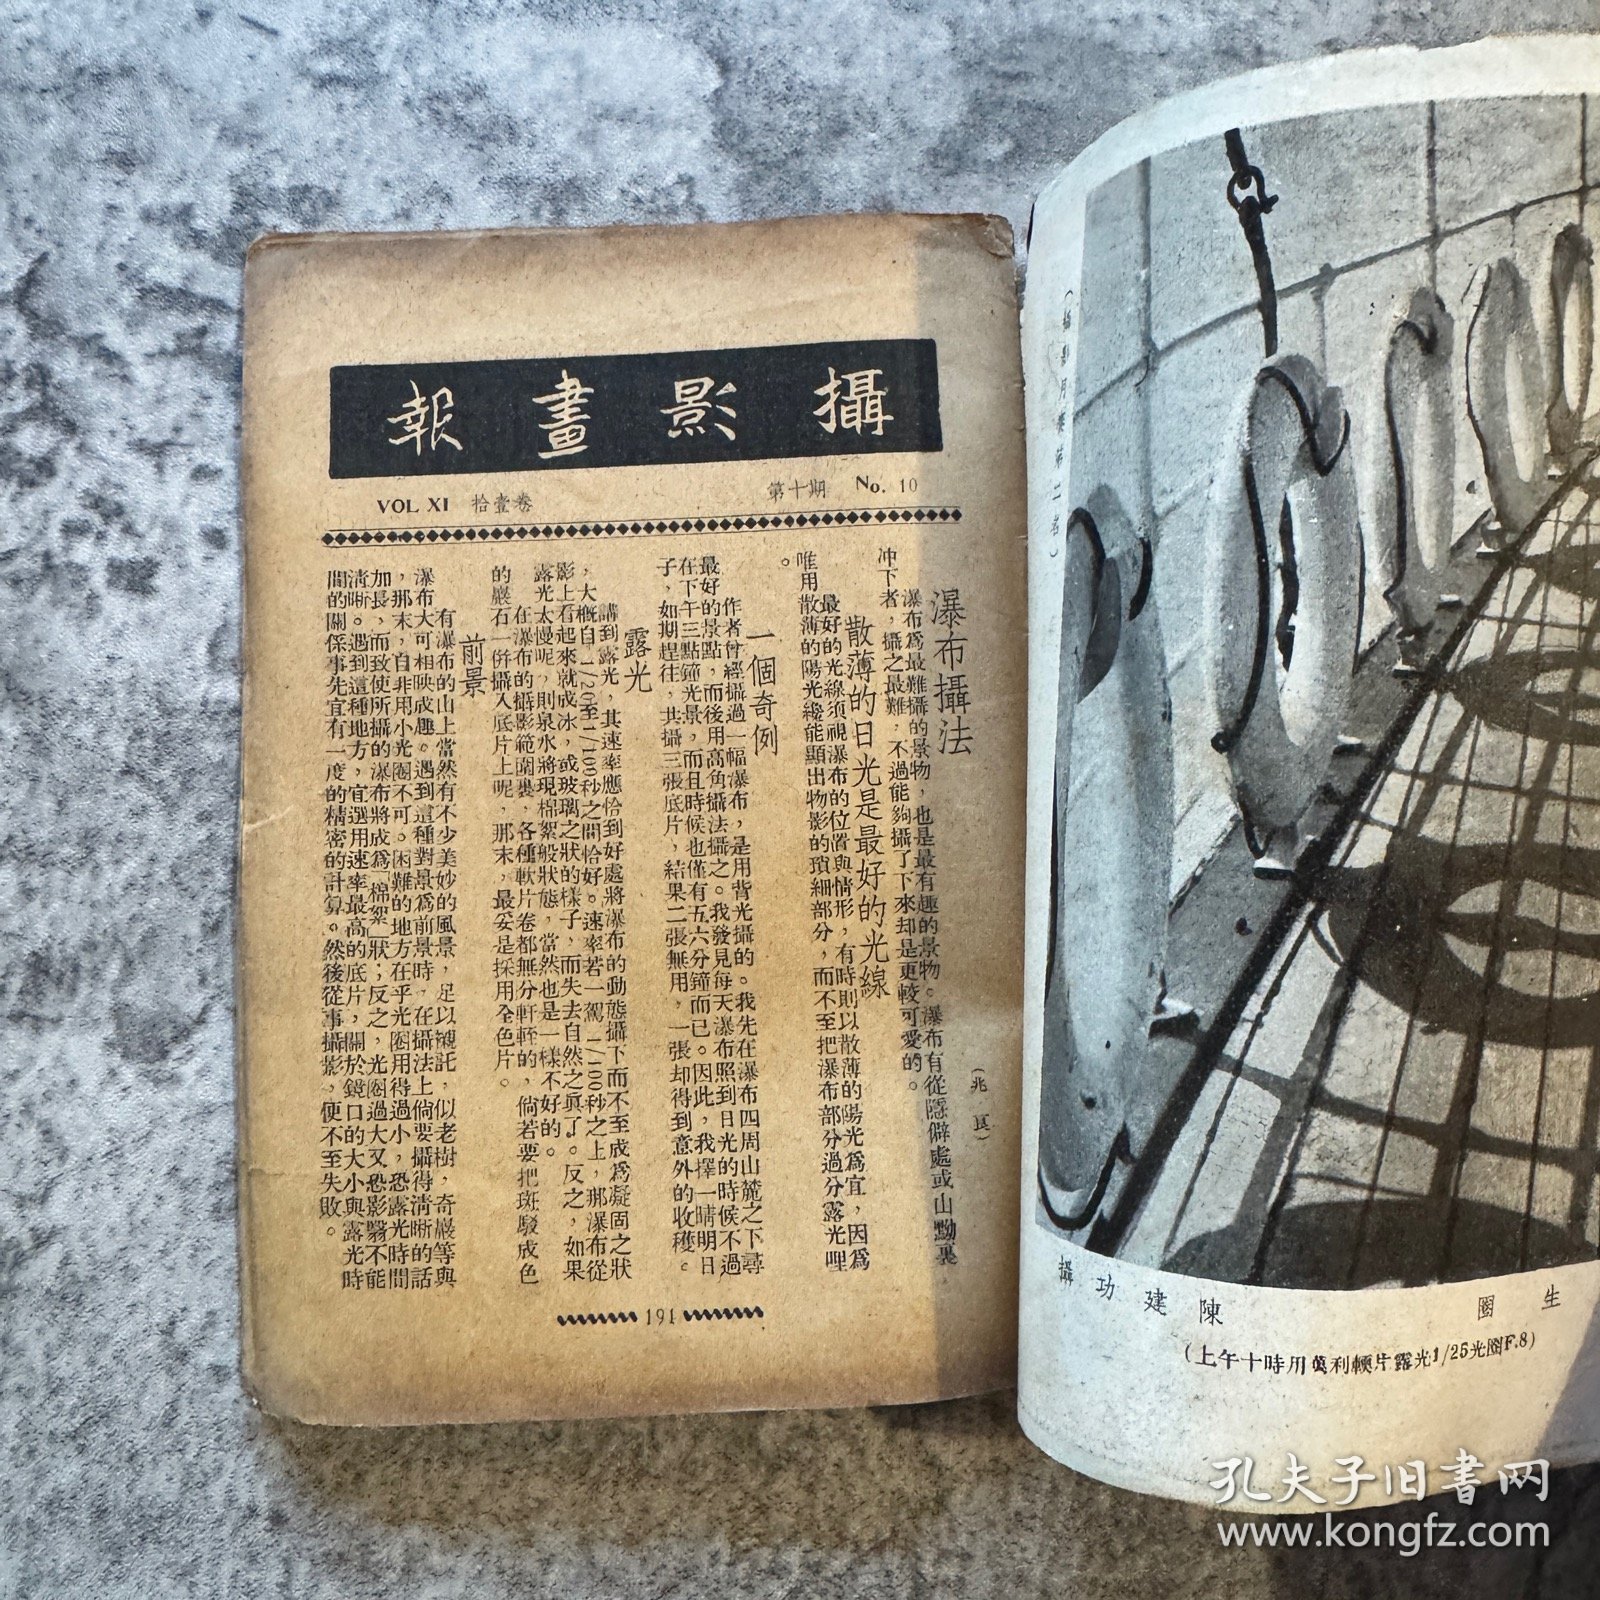 攝影畫報
VOL XI 拾壹卷
第十期 No. 10
瀑布攝法
(兆良)
瀑布爲最難攝的景物，也是最有趣的景物。瀑布有從隱僻處或山黝裏，
冲下者，攝之最難，不過能夠攝了下來却是更較可愛的。
散薄的日光是最好的光線
最好的光線須視瀑布的位置與情形，有時則以散薄的陽光爲宜，因爲
唯用散薄的陽光纔能顯出物影的瑣細部分，而不至把瀑布部分過分露光哩
。
一個奇例
作者曾經攝過一幅瀑布，是用背光攝的。我先在瀑布四周山麓之下尋
最好的景點，而後用高角攝法攝之。我發見每天瀑布照到日光的時候不過
在下午三點鐘光景，而且時候也僅有五六分鐘而已。因此，我擇一晴明日
子，如期趕往，共攝三張底片，結果二張無用，一張却得到意外的收穫。
露光
講到露光，其速率應恰到好處將瀑布的動態攝下而不至成爲凝固之狀
，大槪自1/20至1/100秒之間恰好。速率若一駕1/100秒之上，那瀑布從
影上看起來就成冰，或玻璃之狀的樣子，而失去自然之眞了。反之，如果
露光太慢呢，則泉水將現棉絮般狀態，當然也是一樣不好的。
在瀑布的攝影範圍裏，各種軟片卷都無分軒輊的，倘若要把斑駁成色
的巖石一併攝入底片上呢，那末，最妥是採用全色片。
前景
有瀑布的山上當然有不少美妙的風景，足以襯託，似老樹，奇巖等與
瀑布大可相映成趣。遇到這種對景爲前景時，在攝法上倘要攝得清晰的話
，那末，自非用小光圈不可。困難的地方在乎光圈用得過小，恐露光時間
加長，而致使所攝的瀑布將成爲「棉絮」狀；反之，光圈過大又恐影翳不能
清晰。遇到這種地方，宜選用速率最高的底片，關於鏡口的大小與露光時
間的關係事先宜有一度的精密的計算。然後從事攝影，便不至失敗。
191
生圈
陳建功攝
(上午十時用萬利輭片露光1/25光圈F.8)
孔夫子旧书网
www.kongfz.com